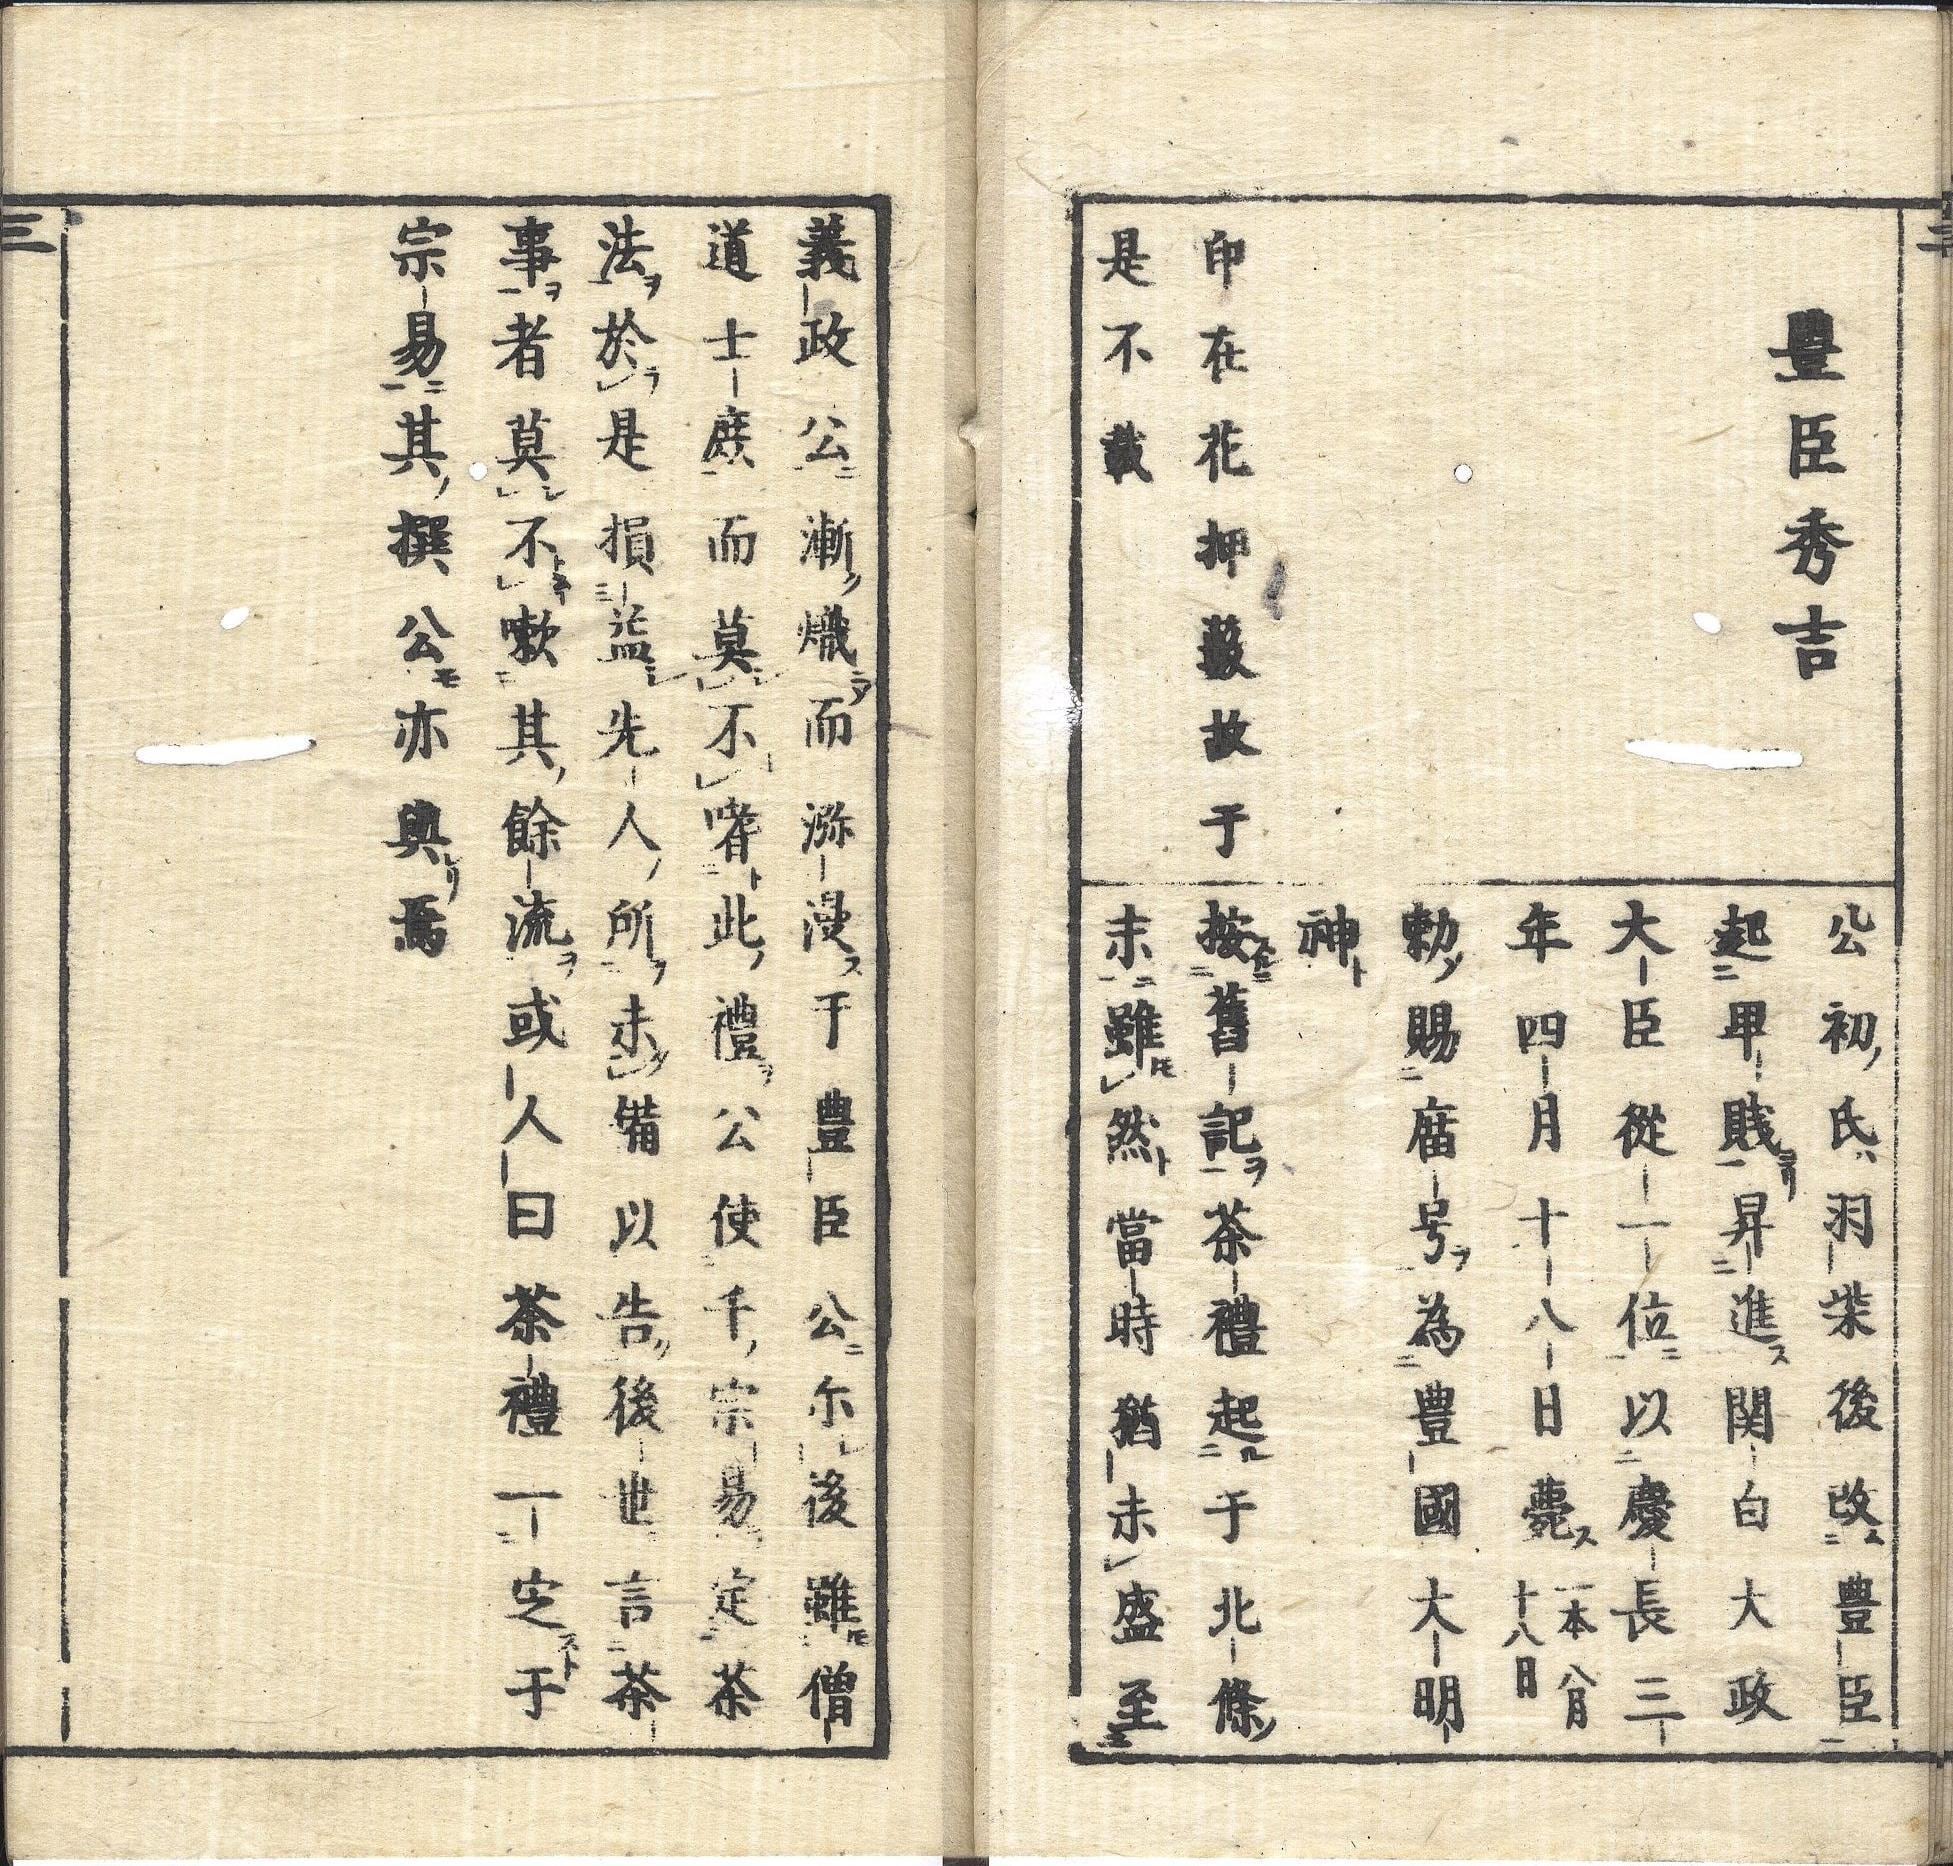 豊臣秀吉
印在花押藪故于
是不載
公初氏羽柴後改豊臣
起卑賎昇進関白大政
大臣從一位以慶長三
年四月十八日薨一本八月十八日
勅賜庿号為豊國大明
神
按舊記茶禮起于北條
末雖然當時猶未盛至
義政公漸熾而瀰漫于豊臣公尓後雖僧
道士庶而莫不嗜此禮公使千宗易定茶
法於是損益先人所未備以告後世言茶
事者莫不嗽其餘流或人曰茶禮一定于
宗易其撰公亦與焉
三